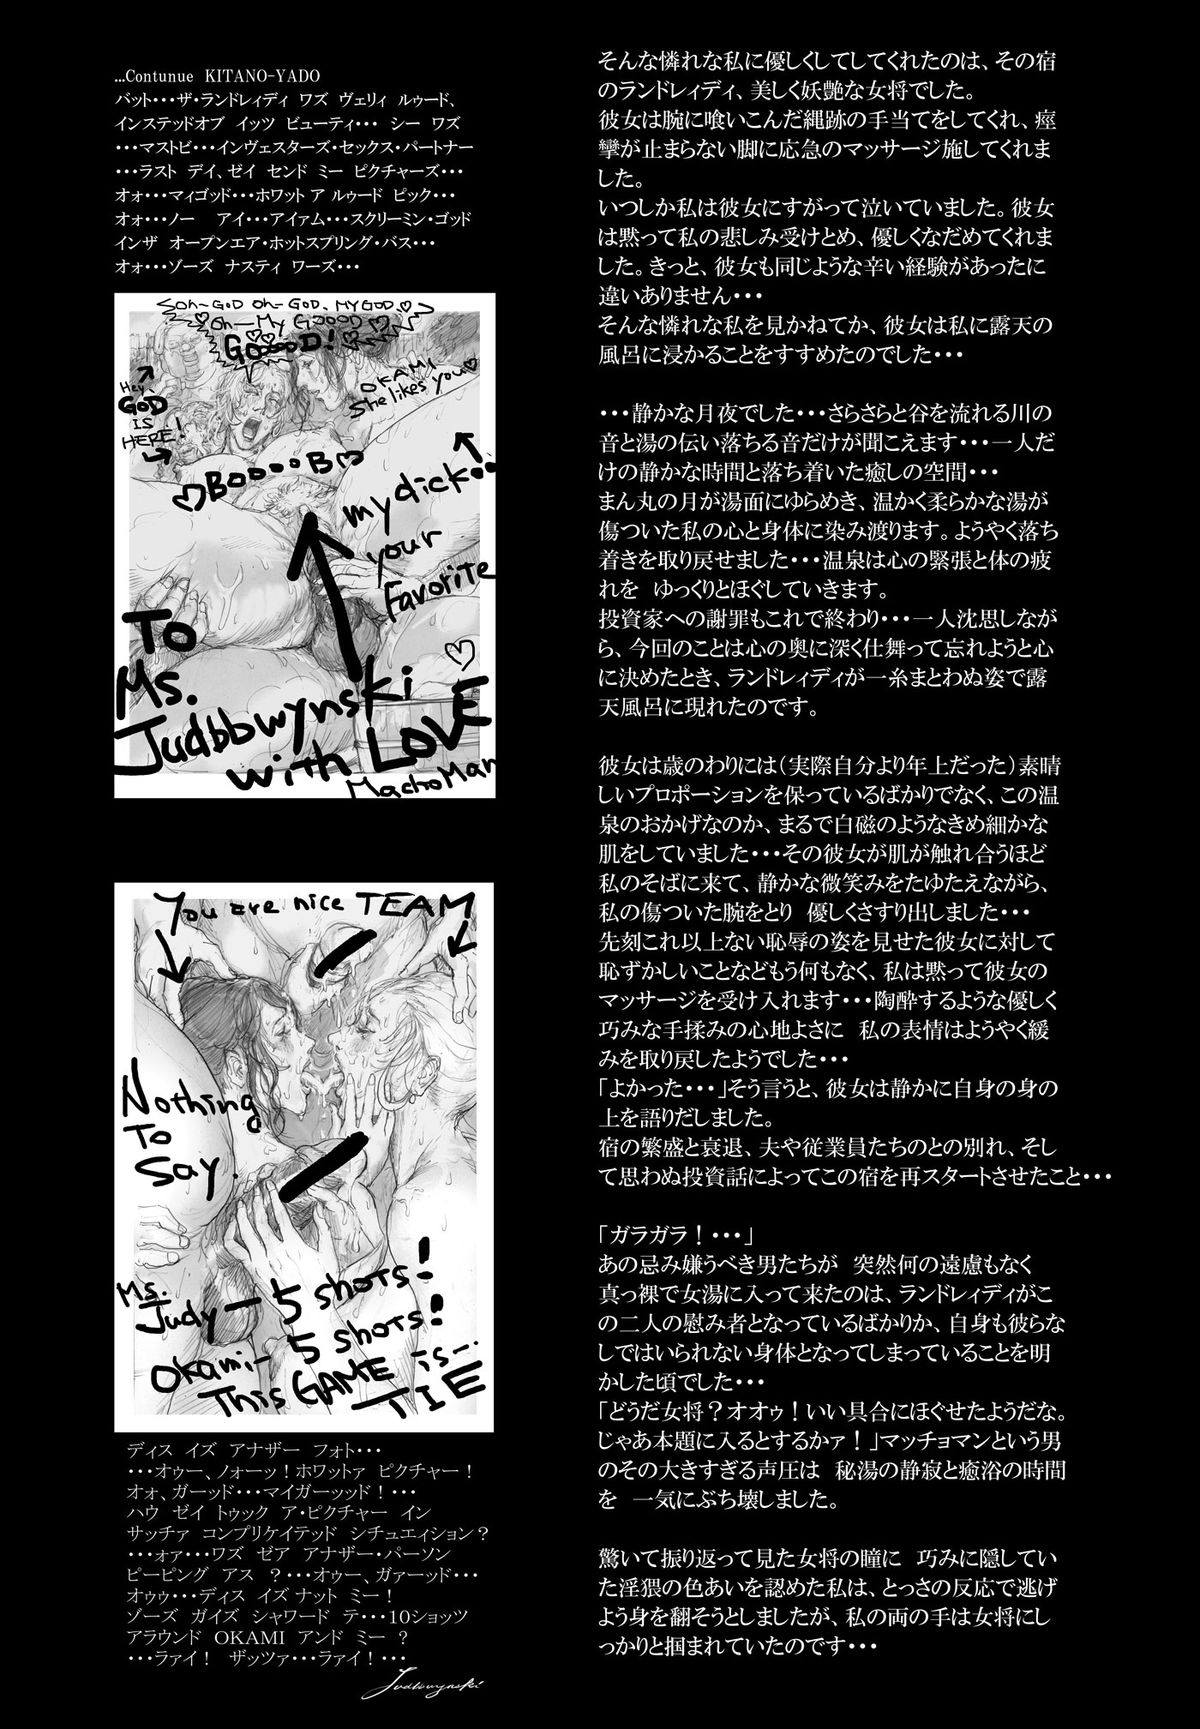 ...Contunue KITANO-YADO
バット・・・ザ・ランドレィディ ワズ ヴェリィ ルゥード、
インステッドオブ イッツ ビューティ・・・ シー ワズ
・・・マストビ・・・インヴェスターズ・セックス・パートナー
・・・ラスト デイ、ゼイ センド ミー ピクチャーズ・・・
オォ・・・マィゴッド・・・ホワット ア ルゥード ピック・・・
オォ・・・ノー アイ・・・アイァム・・・スクリーミン・ゴッド
インザ オープンエア・ホットスプリング・バス・・・
オォ・・・ゾーズ ナスティ ワーズ・・・
Oh-GOD Oh-GOD, MY GOD ♡
Oh-My GOOOD ♡
GOOOOD!
Hey, GOD IS HERE!
OKAMI She likes you♡
♡BOOooB♡
my dick
your
Favorite
To
Ms.
Judbbwynski
with LOVE ♡
MachoMan
You are nice TEAM
Nothing
To
Say.
Ms.
Judy— 5 shots!
Okami— 5 shots!
This GAME is...
TIE
ディス イズ アナザー フォト・・・
・・・オゥー、ノォーッ！ホワットァ ピクチャー！
オォ、ガーッド・・・マイガーッッド！・・・
ハウ ゼイ トゥック ア・ピクチャー イン
サッチァ コンプリケイテッド シチュエィション？
・・・ォァ・・・ワズ ゼア アナザー・パーソン
ピーピング アス ？・・・オゥー、ガァーッド・・・
オゥゥ・・・ディス イズ ナット ミー！
ゾーズ ガイズ シャワード テ・・・10ショッツ
アラウンド OKAMI アンド ミー ？
・・・ラァイ！ ザッツァ・・・ラァイ！・・・
Judbbwynski
そんな憐れな私に優しくしてしてくれたのは、その宿
のランドレィディ、美しく妖艶な女将でした。
彼女は腕に喰いこんだ縄跡の手当てをしてくれ、痙
攣が止まらない脚に応急のマッサージ施してくれま
した。
いつしか私は彼女にすがって泣いていました。彼女
は黙って私の悲しみ受けとめ、優しくなだめてくれま
した。きっと、彼女も同じような辛い経験があったに
違いありません・・・
そんな憐れな私を見かねてか、彼女は私に露天の
風呂に浸かることをすすめたのでした・・・
・・・静かな月夜でした・・・さらさらと谷を流れる川の
音と湯の伝い落ちる音だけが聞こえます・・・一人だ
けの静かな時間と落ち着いた癒しの空間・・・
まん丸の月が湯面にゆらめき、温かく柔らかな湯が
傷ついた私の心と身体に染み渡ります。ようやく落ち
着きを取り戻せました・・・温泉は心の緊張と体の疲
れを ゆっくりとほぐしていきます。
投資家への謝罪もこれで終わり・・・一人沈思しなが
ら、今回のことは心の奥に深く仕舞って忘れようと心
に決めたとき、ランドレィディが一糸まとわぬ姿で露
天風呂に現れたのです。
彼女は歳のわりには（実際自分より年上だった）素晴
しいプロポーションを保っているばかりでなく、この温
泉のおかげなのか、まるで白磁のようなきめ細かな
肌をしていました・・・その彼女が肌が触れ合うほど
私のそばに来て、静かな微笑みをたゆたえながら、
私の傷ついた腕をとり 優しくさすり出しました・・・
先刻これ以上ない恥辱の姿を見せた彼女に対して
恥ずかしいことなどもう何もなく、私は黙って彼女の
マッサージを受け入れます・・・陶酔するような優しく
巧みな手揉みの心地よさに 私の表情はようやく緩
みを取り戻したようでした・・・
「よかった・・・」そう言うと、彼女は静かに自身の身の
上を語りだしました。
宿の繁盛と衰退、夫や従業員たちのとの別れ、そし
て思わぬ投資話によってこの宿を再スタートさせたこと・・・
「ガラガラ！・・・」
あの忌み嫌うべき男たちが 突然何の遠慮もなく
真っ裸で女湯に入って来たのは、ランドレィディがこ
の二人の慰み者となっているばかりか、自身も彼らな
しではいられない身体となってしまっていることを明
かした頃でした・・・
「どうだ女将？オオゥ！いい具合にほぐせたようだな。
じゃあ本題に入るとするかァ！」マッチョマンという男
のその大きすぎる声圧は 秘湯の静寂と癒浴の時間
を 一気にぶち壊しました。
驚いて振り返って見た女将の瞳に 巧みに隠してい
た淫猥の色あいを認めた私は、とっさの反応で逃げ
よう身を翻そうとしましたが、私の両の手は女将にし
っかりと掴まれていたのです・・・